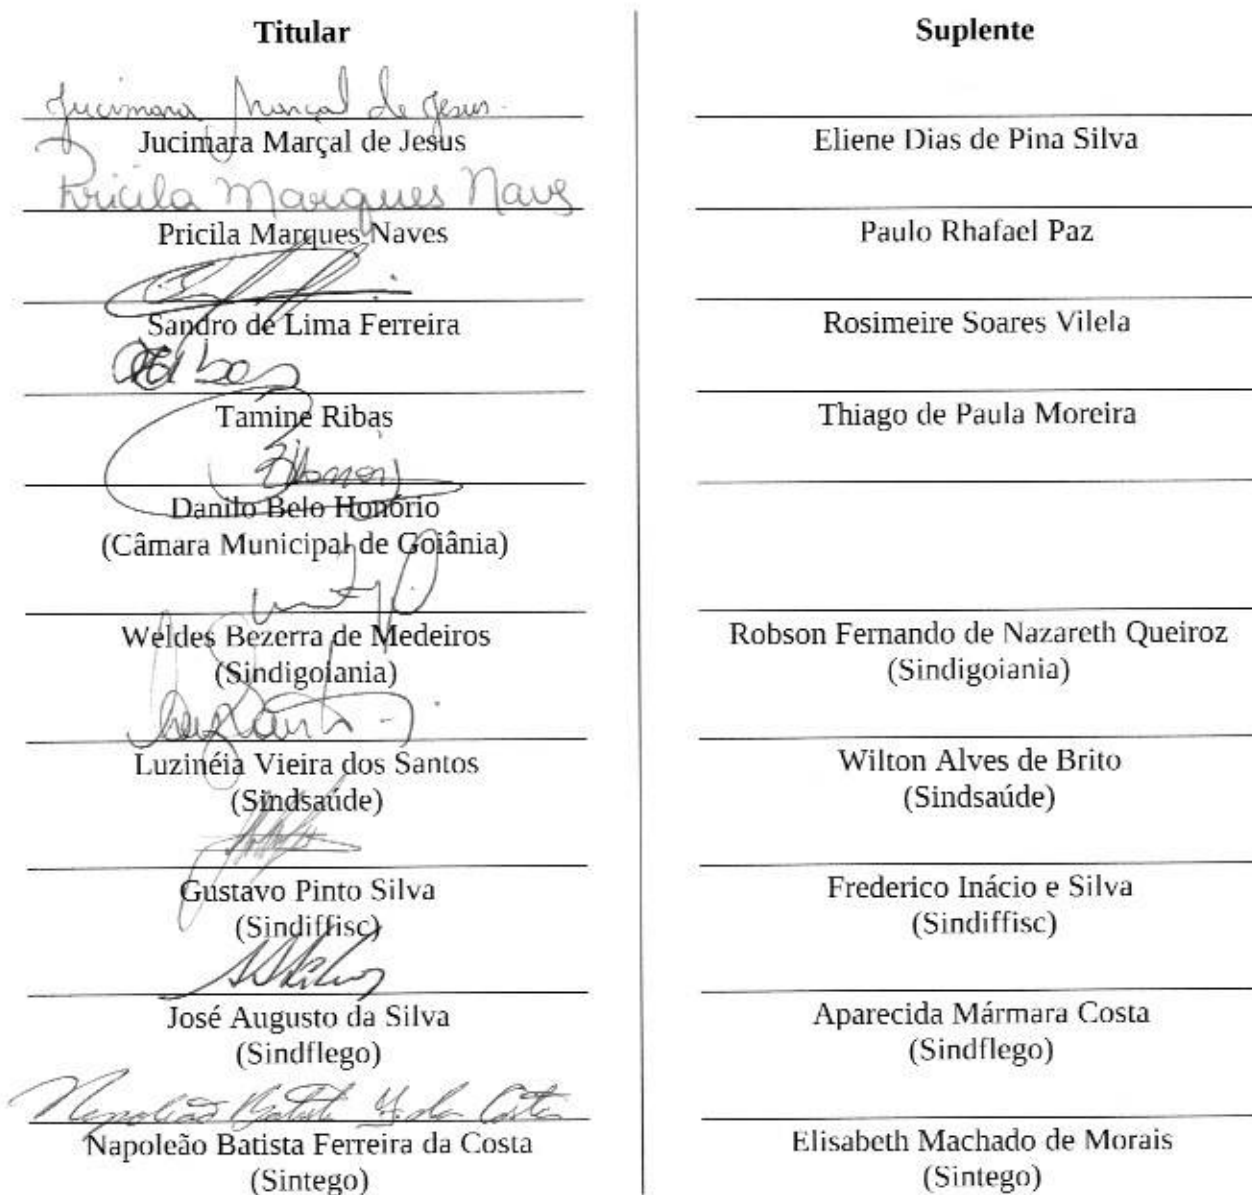 Titular
Jucimara Marçal de Jesus.
Jucimara Marçal de Jesus
Pricila Marques Naves
Pricila Marques Naves
Sandro de Lima Ferreira
Tamine Ribas
Danilo Belo Honório
(Câmara Municipal de Goiânia)
Weldes Bezerra de Medeiros
(Sindigoiania)
Luzinéia Vieira dos Santos
(Sindsaúde)
Gustavo Pinto Silva
(Sindiffisc)
José Augusto da Silva
(Sindflego)
Napoleão Batista F. da Costa
Napoleão Batista Ferreira da Costa
(Sintego)
Suplente
Eliene Dias de Pina Silva
Paulo Rhafael Paz
Rosimeire Soares Vilela
Thiago de Paula Moreira
Robson Fernando de Nazareth Queiroz
(Sindigoiania)
Wilton Alves de Brito
(Sindsaúde)
Frederico Inácio e Silva
(Sindiffisc)
Aparecida Mármara Costa
(Sindflego)
Elisabeth Machado de Morais
(Sintego)